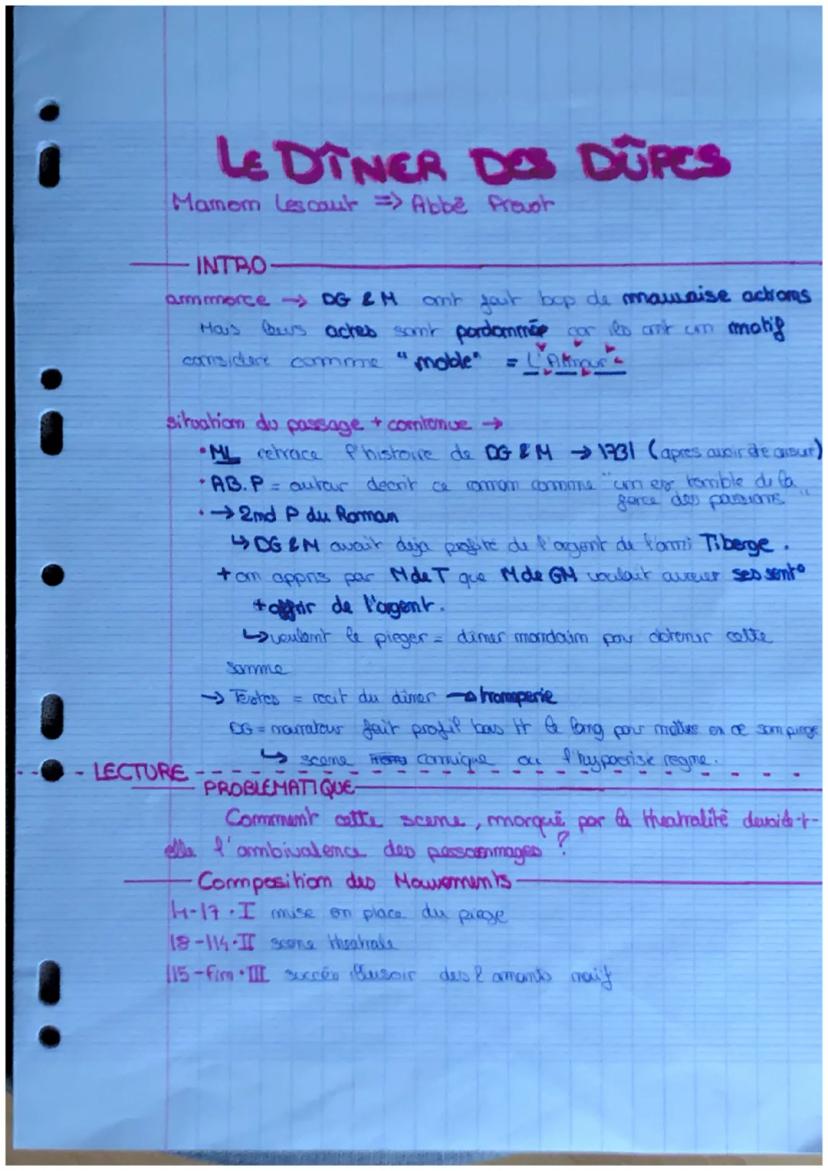 LE DÎNER DES DÛPES
Manon Lescaut => Abbé Prevot
INTRO
ammorce → DG & M ont fait bcp de mauvaise actions
Mais leurs actes sont pardonnée car ils ont un motif
considéré comme "noble" = L'Amour
situation du passage + contenue →
• ML retrace l'histoire de DG & M → 1731 (apres avoir été
• AB.P = auteur decrit ce roman comme "un ex terrible de la
force des passions"
• → 2nd P du Roman
↳ DG & M avait deja profité de l'argent de l'ami Tiberge.
+ on appris par M de T que M de GM voulait avouer ses sent°
+ offrir de l'argent.
↳ veulent le pieger = diner mondain pour obtenir cette
somme
→ Textes = recit du diner → tromperie
DG = narrateur fait profil bas tt le long pour mettre en œ son piege
↳ scene comique ou l'hypocrisie regne.
LECTURE
PROBLÉMATIQUE
Comment cette scene, marqué par la theatralité devoile-t-
elle l'ambivalence des personnages ?
Composition des Mouvements
l1-l7 • I mise en place du piege
l8-l14 • II scene theatrale
l15-fin • III succès illusoir des 2 amants naif